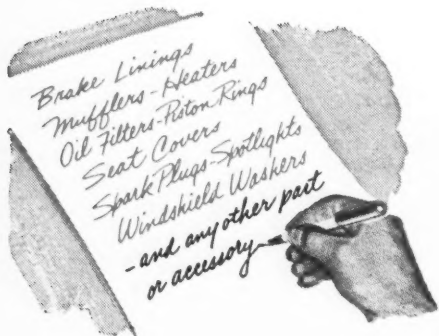 Brake Linings
Mufflers - Heaters
Oil Filters - Piston Rings
Seat Covers
Spark Plugs - Spotlights
Windshield Washers
- and any other part
or accessory